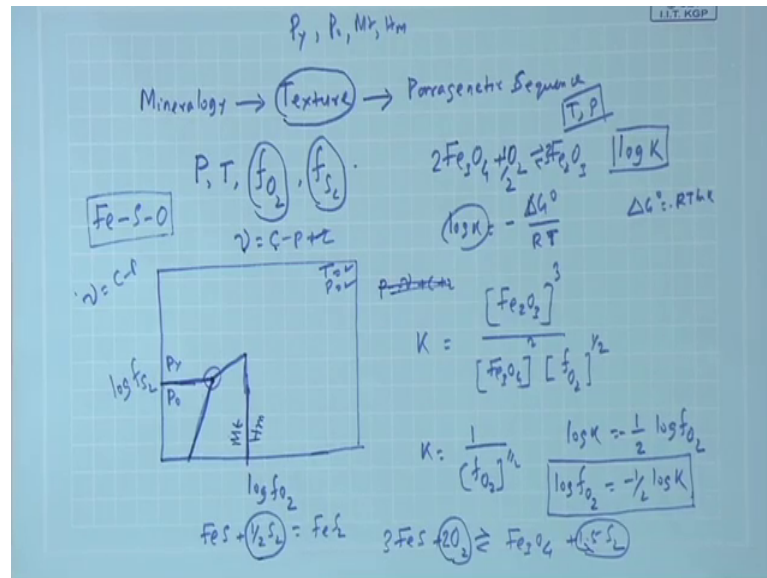 I.I.T. KGP
Py, Po, Mt, Hm
Mineralogy → Texture → Parragenetic Sequence
T, P
P, T, fO2, fS2.
2Fe3O4 + 1/2 O2 ⇌ 3Fe2O3 log K
Fe-S-O
ν = C-P+2
logK = - ΔG° / RT
ΔG° = -RT ln K
ν = C-P
T = ✓
P = ✓
K = [Fe2O3]^3 / [Fe3O4]^2 [fO2]^1/2
Py
log fS2
Po
Mt
Hm
log fO2
K = 1 / (fO2)^1/2
logK = - 1/2 log fO2
log fO2 = -1/2 log K
FeS + 1/2 S2 = FeS2
3FeS + 2O2 ⇌ Fe3O4 + 1.5 S2